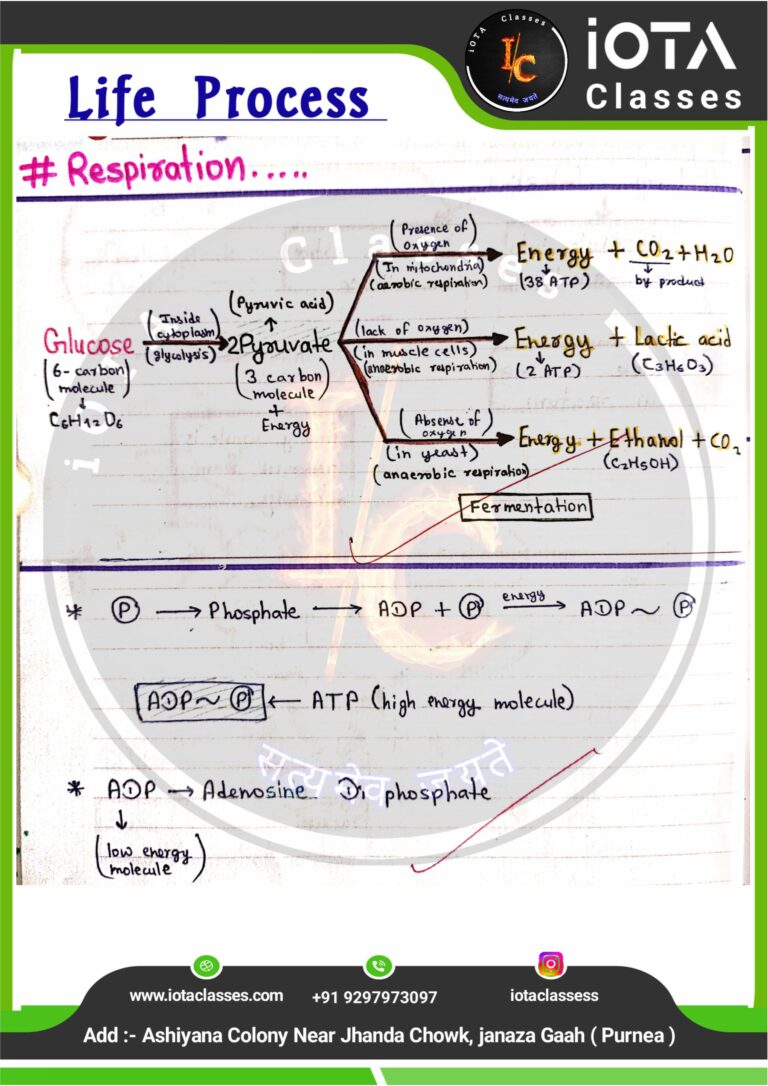 iOTA Classes
I/C
सत्यमेव जयते
iOTA
Classes
Life Process
# Respiration.....
Classes
(Presence of
oxygen)
Energy + CO2 + H2O
(In mitochondria)
(aerobic respiration)
(38 ATP)
by product
(Pyruvic acid)
(Inside
cytoplasm)
(lack of oxygen)
Glucose
2Pyruvate
Energy + Lactic acid
(glycolysis)
(in muscle cells)
(anaerobic respiration)
(2 ATP)
(C3H6O3)
(6- carbon
molecule)
(3 carbon
molecule
+
Energy
C6H12O6
(Absense of
oxygen)
Energy + Ethanol + CO2
(in yeast)
(C2H5OH)
(anaerobic respiration)
Fermentation
* Ⓟ → Phosphate → ADP + Ⓟ energy → ADP ~ Ⓟ
ADP ~ Ⓟ ← ATP (high energy molecule)
सत्यमेव जयते
* ADP → Adenosine Di phosphate
↓
(low energy
molecule)
www.iotaclasses.com
+91 9297973097
iotaclassess
Add :- Ashiyana Colony Near Jhanda Chowk, janaza Gaah ( Purnea )